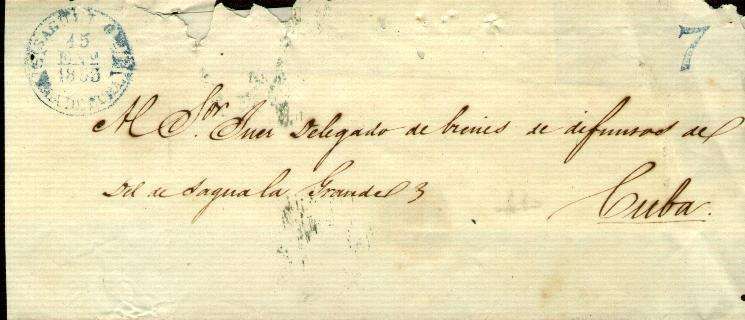 15
7
Al Sor. Juez Delegado de bienes de difuntos de
Del de Sagua la Grande
Cuba.